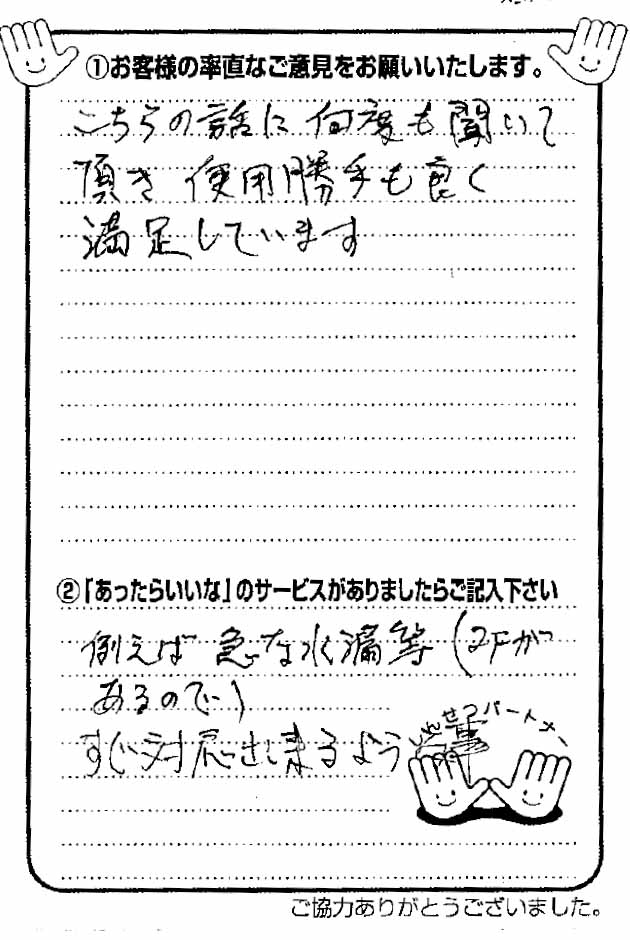 ①お客様の率直なご意見をお願いいたします。
こちらの話に何度も聞いて
頂き使用勝手も良く
満足しています
②「あったらいいな」のサービスがありましたらご記入下さい
例えば急な水漏等(2Fが
あるので)
すぐ対応出来るよう
しんせつパートナー
ご協力ありがとうございました。